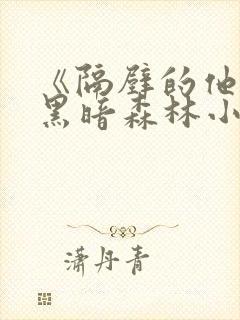 《隔壁的他
黑暗森林小
潇丹青